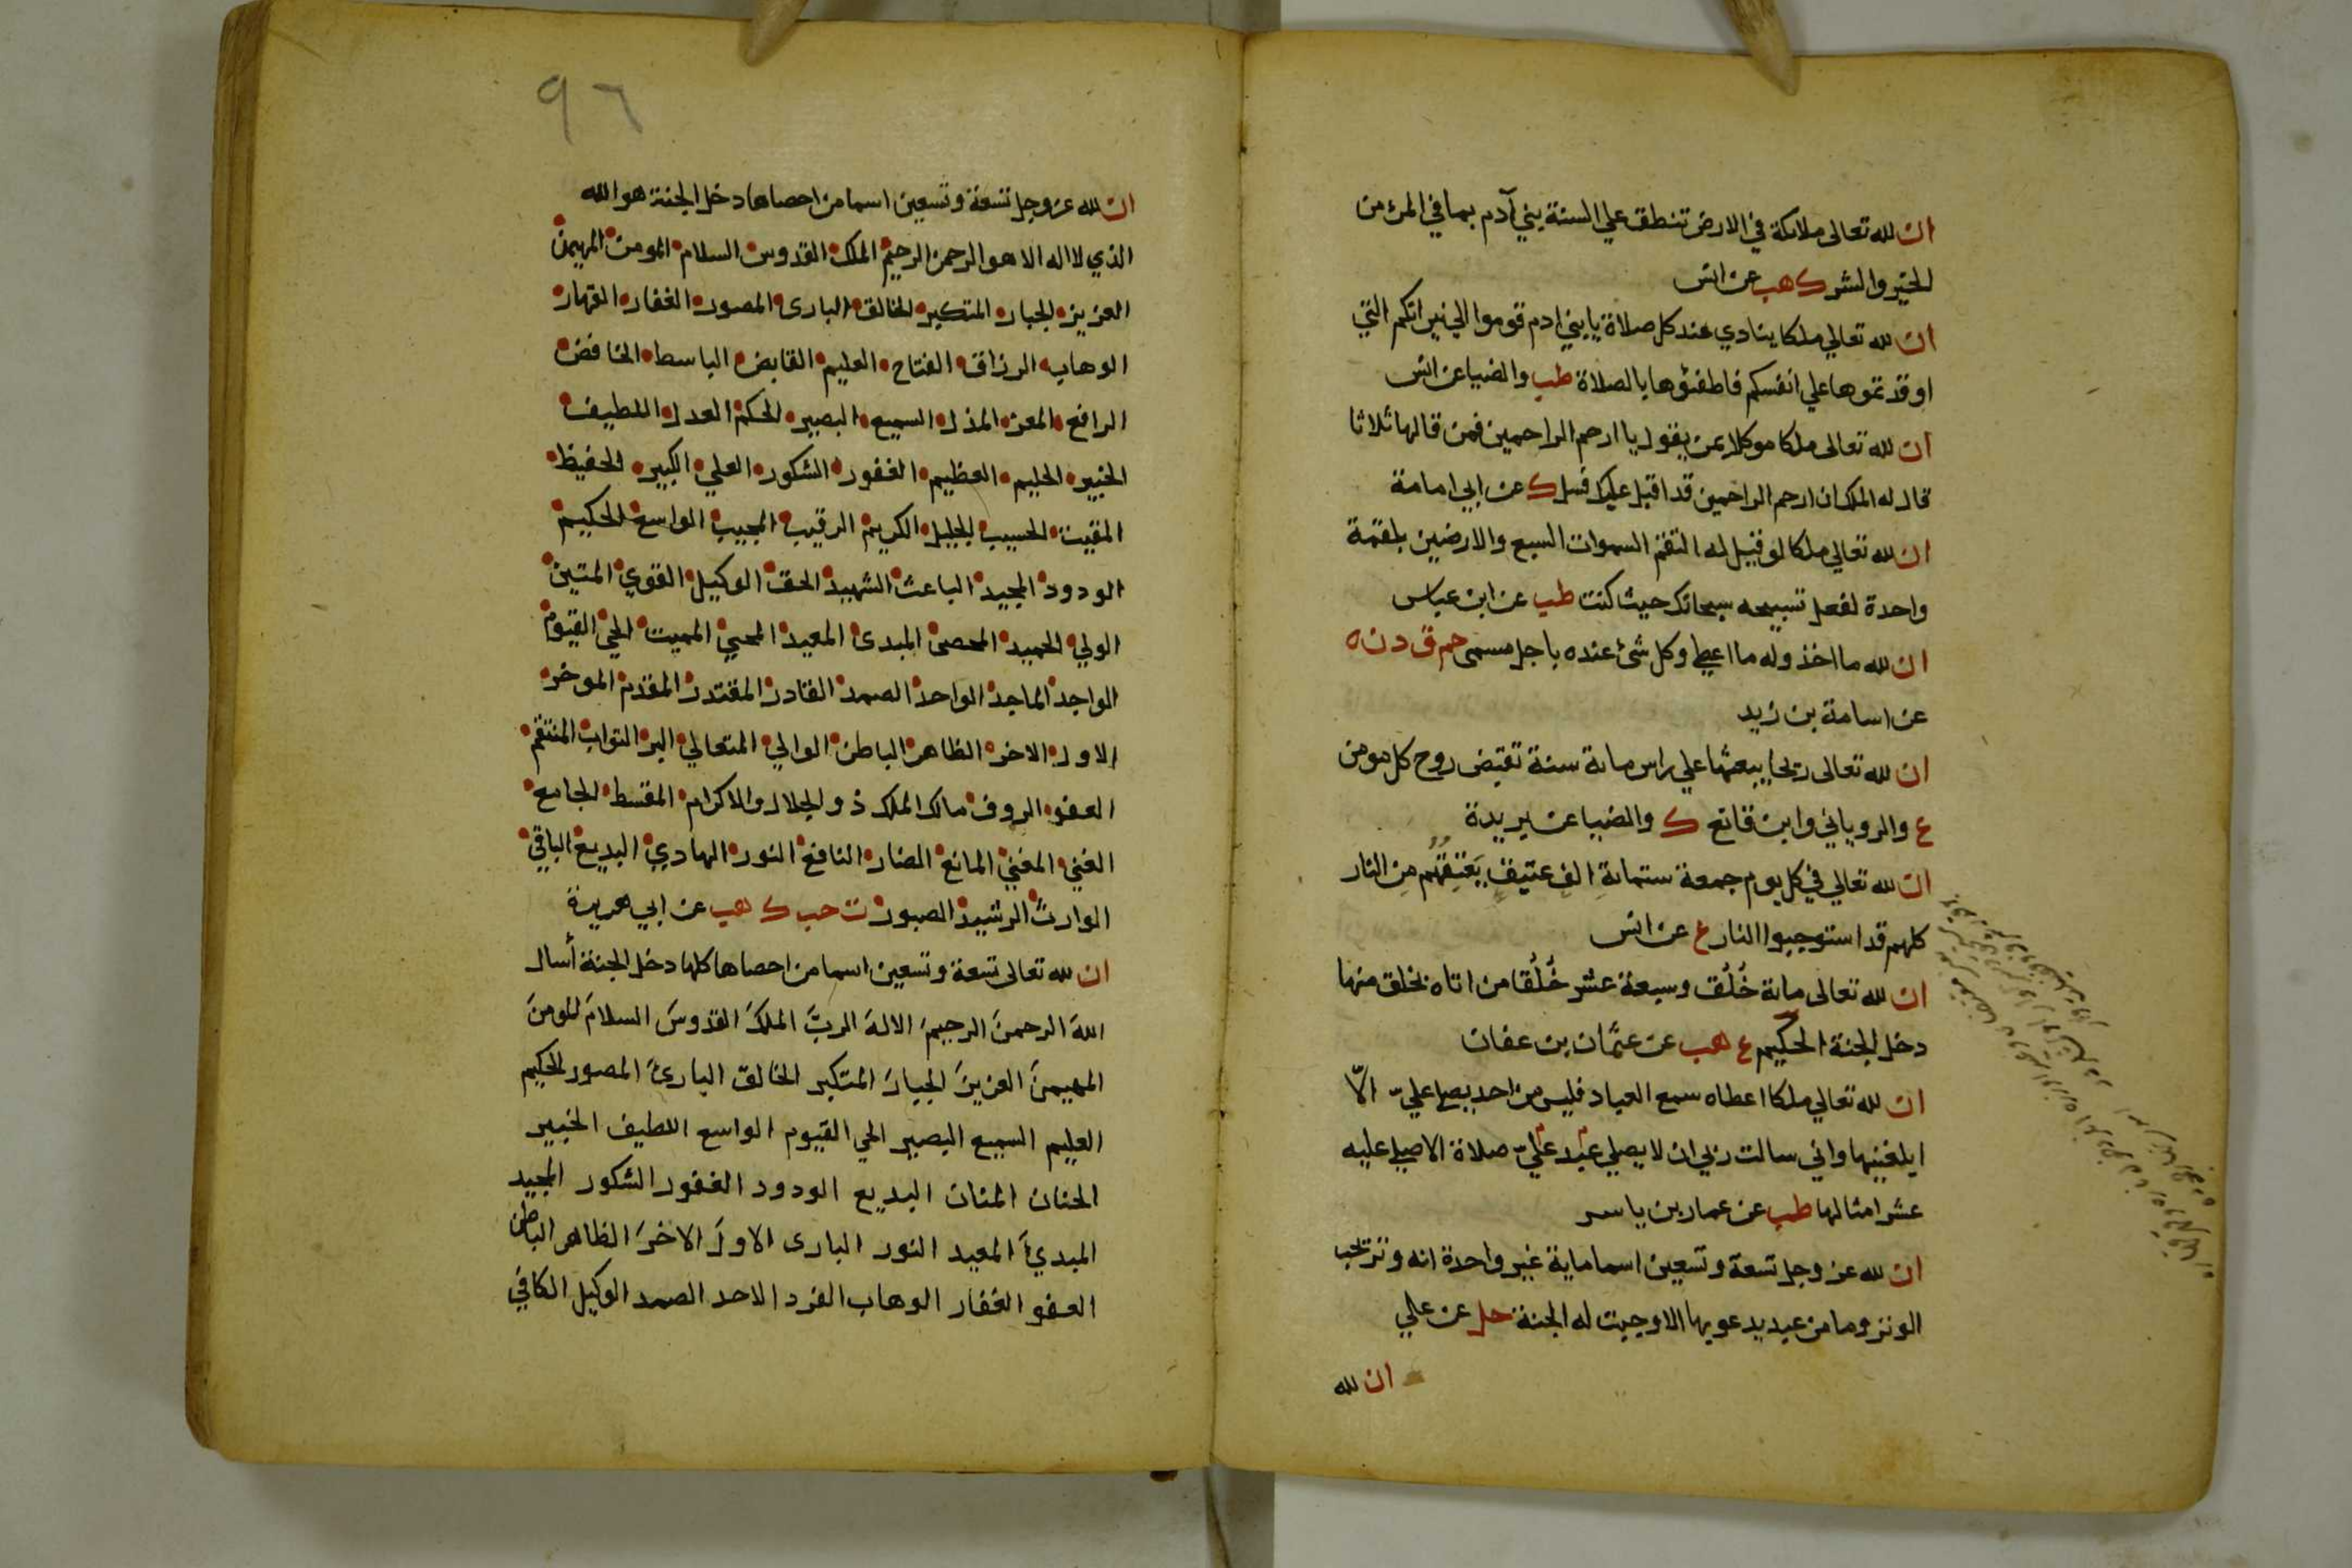 ان لله تعالى ملائكة في الارض تنطق علي السنة بني آدم بما في المرء من
الخير والشر ك هب عن انس
ان لله تعالي ملكا ينادي عند كل صلاة يا بني ادم قوموا الي نيرانكم التي
اوقدتموها علي انفسكم فاطفئوها بالصلاة طب والضيا عن انس
ان لله تعالى ملكا موكلا بمن يقول يا ارحم الراحمين فمن قالها ثلاثا
قال له الملك ان ارحم الراحمين قد اقبل عليك فسل ك عن ابي امامة
ان لله تعالي ملكا لو قيل له التقم السموات السبع والارضين بلقمة
واحدة لفعل تسبيحه سبحانك حيث كنت طب عن ابن عباس
ان لله ما اخذ وله ما اعطي وكل شئ عنده باجل مسمى حم ق د ن ه
عن اسامة بن زيد
ان لله تعالى ريحا يبعثها علي راس ماية سنة تقبض روح كل مومن
ع والروياني وابن قانع ك والضيا عن بريدة
ان لله تعالي في كل يوم جمعة ستماية الف عتيق يعتقهم من النار
كلهم قد استوجبوا النار ع عن انس
ان لله تعالى ماية خُلُق وسبعة عشر خُلُقا من اتاه بخلق منها
دخل الجنة الحكيم ع هب عن عثمان بن عفان
ان لله تعالي ملكا اعطاه سمع العباد فليس من احد يصلي عليّ الّا
ابلغنيها واني سالت ربي ان لا يصلي عبد عليّ صلاة الا صلي عليه
عشر امثالها طب عن عمار بن ياسر
ان لله عز وجل تسعة وتسعين اسما ماية غير واحدة انه وتر يحب
الوتر وما من عبد يدعو بها الا وجبت له الجنة حل عن علي
ان لله
٩٦
ان لله عز وجل تسعة وتسعين اسما من احصاها دخل الجنة هو الله
الذي لا اله الا هو الرحمن الرحيم الملك القدوس السلام المومن المهيمن
العزيز الجبار المتكبر الخالق البارى المصور الغفار القهار
الوهاب الرزاق الفتاح العليم القابض الباسط الخافض
الرافع المعز المذل السميع البصير الحكم العدل اللطيف
الخبير الحليم العظيم الغفور الشكور العلي الكبير الحفيظ
المقيت الحسيب الجليل الكريم الرقيب المجيب الواسع الحكيم
الودود المجيد الباعث الشهيد الحق الوكيل القوي المتين
الولي الحميد المحصي المبدى المعيد المحيي المميت الحي القيوم
الواجد الماجد الواحد الصمد القادر المقتدر المقدم الموخر
الاول الاخر الظاهر الباطن الوالي المتعالي البر التواب المنتقم
العفو الروف مالك الملك ذو الجلال والاكرام المقسط الجامع
الغني المغني المانع الضار النافع النور الهادي البديع الباقي
الوارث الرشيد الصبور ت حب ك هب عن ابي هريرة
ان لله تعالى تسعة وتسعين اسما من احصاها كلها دخل الجنة أسال
اللهَ الرحمنَ الرحيمَ الالهَ الربَّ الملكَ القدوسَ السلامَ المومنَ
المهيمنَ العزيزَ الجبارَ المتكبر الخالق البارئَ المصور الحكيم
العليم السميع البصير الحي القيوم الواسع اللطيف الخبير
الحنان المنان البديع الودود الغفور الشكور المجيد
المبدئَ المعيد النور البارى الاولَ الاخرَ الظاهر الباطن
العفو الغفار الوهاب الفرد الاحد الصمد الوكيل الكافي